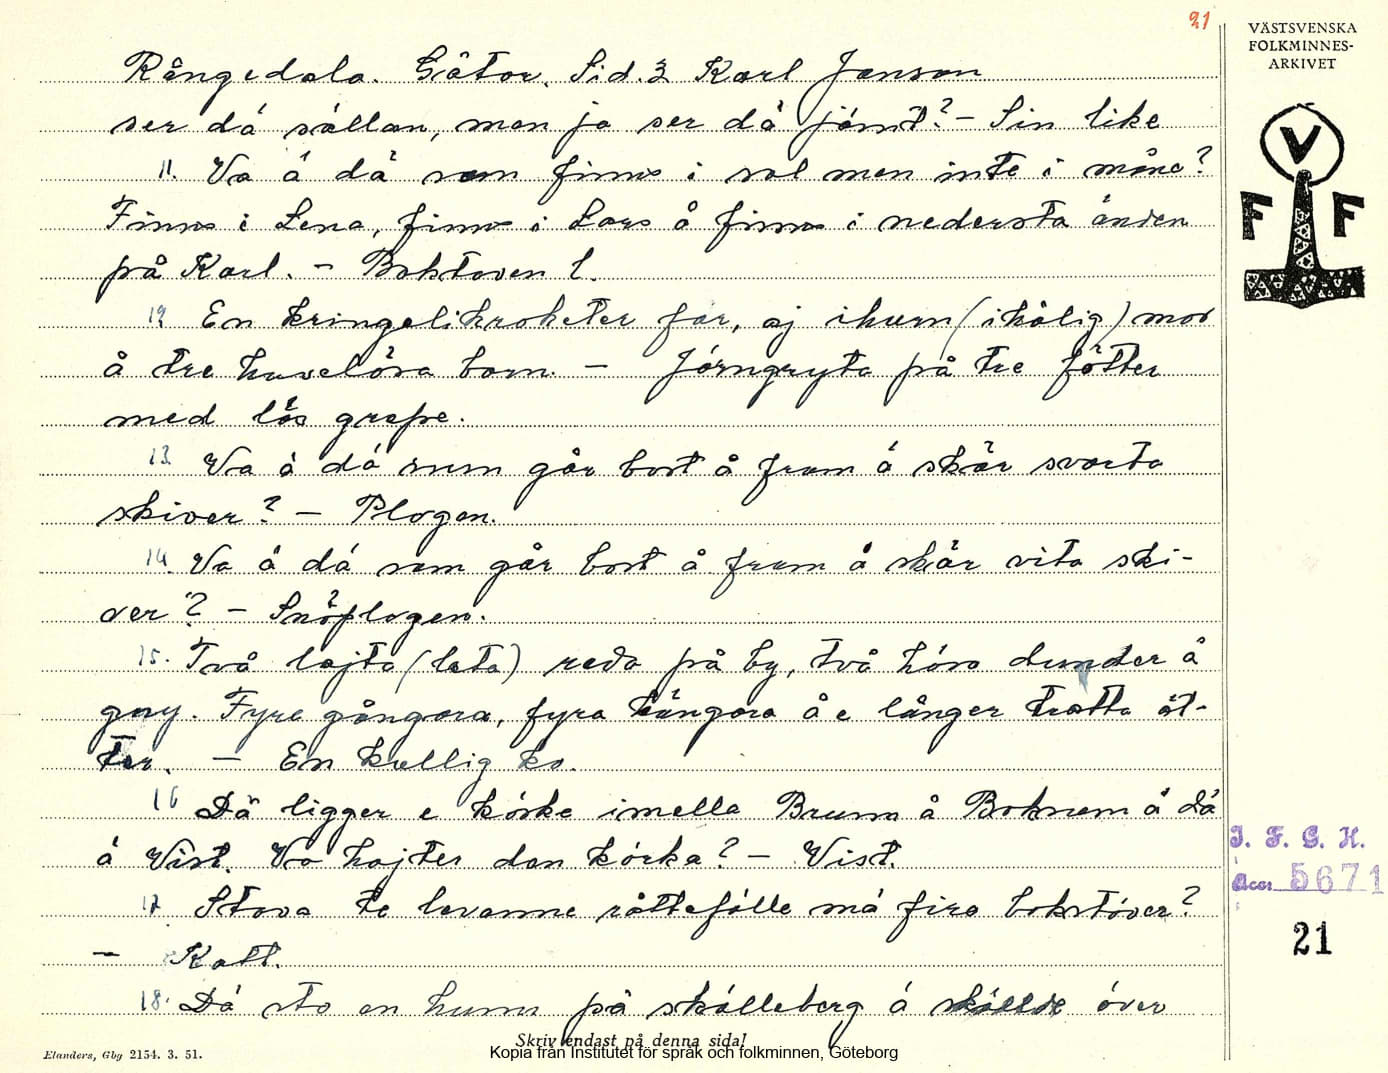 21
VÄSTSVENSKA
FOLKMINNES-
ARKIVET
V
F F
Rångedala. Gåtor. Sid. 3 Karl Janson
ser dá sällan, men ja ser dá jámt? – Sin like
11. Va á dá som finns i sol men inte i måne?
Finns i Lena, finns i Lars å finns i nedersta ánden
på Karl. – Bokstaven l.
12 En kringelikroketer far, aj ihum (ihålig) mor
å tre huvelösa barn. – Járngryta på tre fötter
med lös grepe.
13. Va á dá sum går bort å fram á skär svarta
skiver? – Plogen.
14. Va á dá som går bort å fram å skär vita ski-
ver? – Snöplogen.
15. Två lajta (leta) reda på by, två höra dunder å
gny. Fyra gångara, fyra hängara å e långer tratta ät-
ter. – En kullig ko.
16 Dá ligger e körke imella Brunn å Boknem á dá
á Vist. Va hajter dan körka? – Vist.
17 Stava te levanne råttefälle má fira bokstöver?
– Katt.
18. Dá sto en hunn på skálleberg á skállde över
Skriv endast på denna sida!
Elanders, Gbg 2154. 3. 51.
Kopia från Institutet för språk och folkminnen, Göteborg
I. F. G. H.
Acc: 5671
21